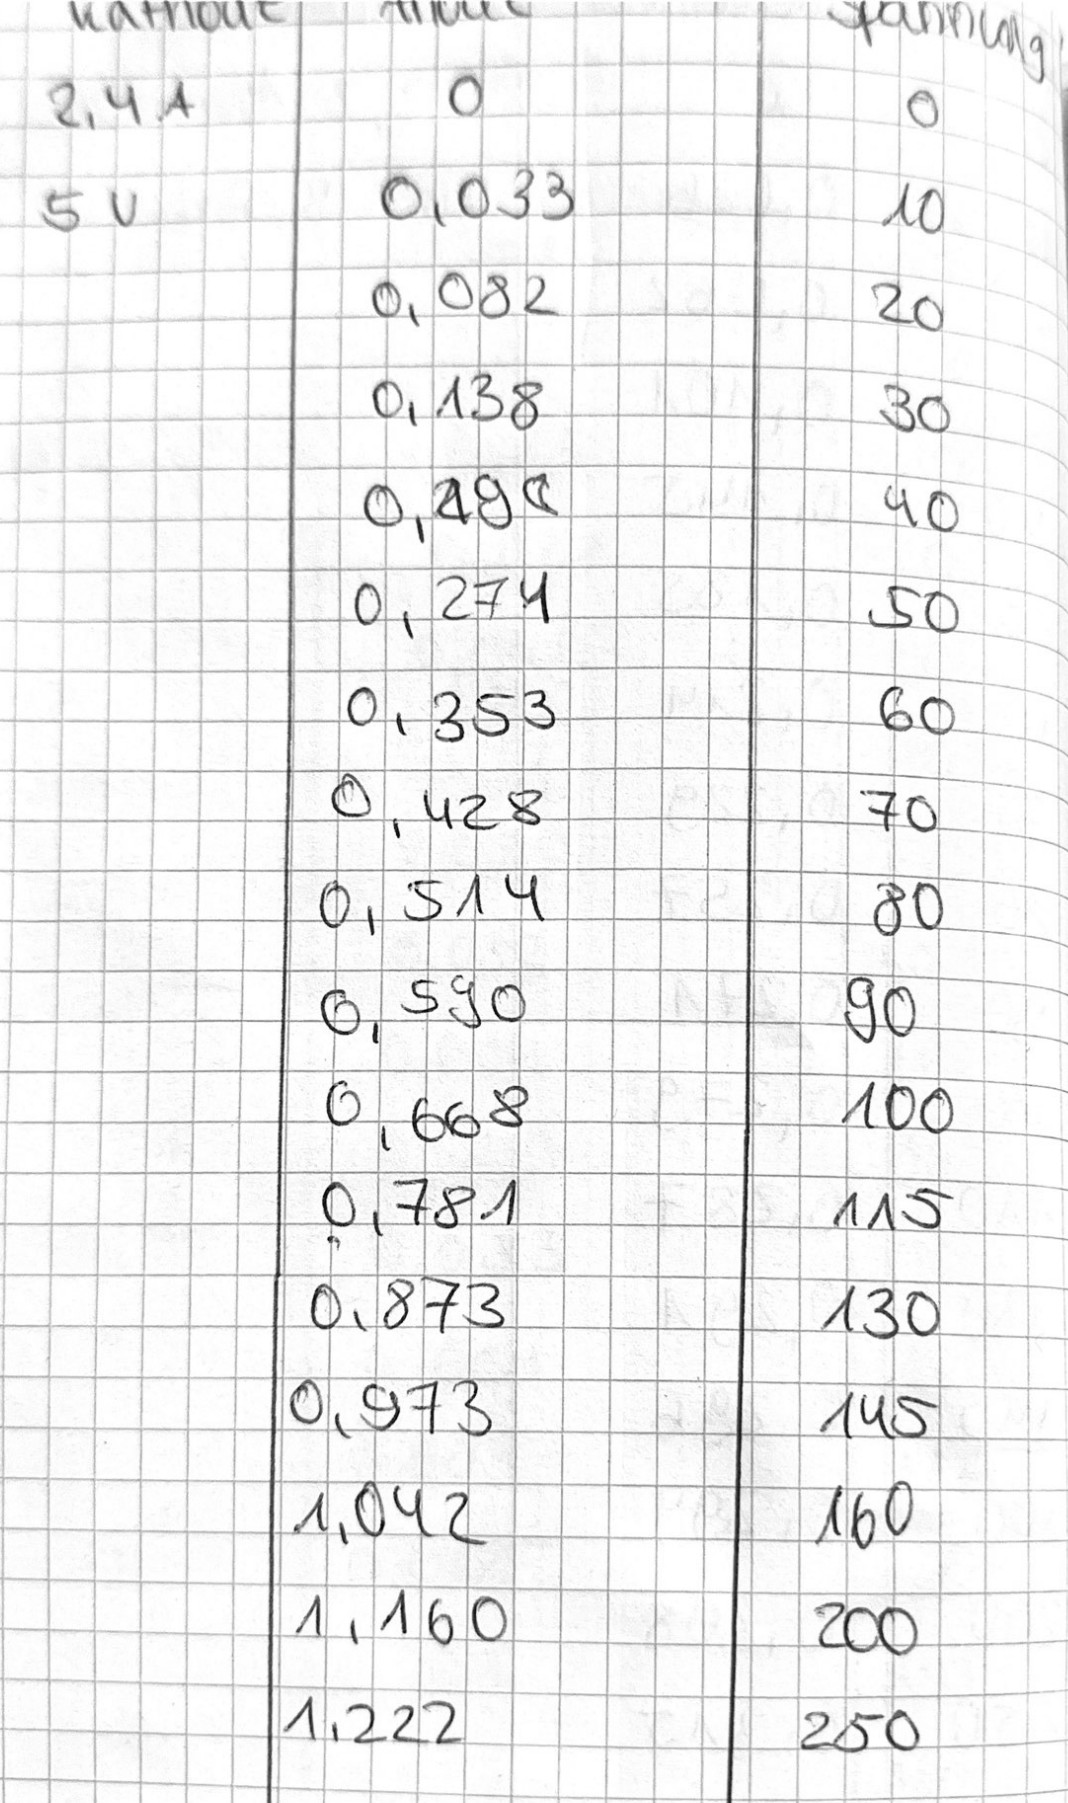 Kathode Anode Spannung
2,4 A 0 0
5 V 0,033 10
0,082 20
0,138 30
40
0,274 50
0,353 60
0,428 70
0,514 80
0,590 90
0,668 100
0,781 115
0,873 130
0,973 145
1,042 160
1,160 200
1,222 250